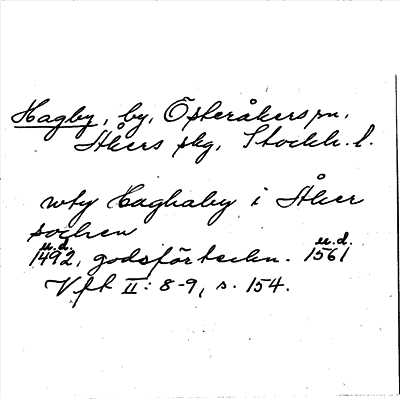 Hagby, by, Österåkers sn.
Åkers skg, Stockh. l.
wty Haghaby i Åker
sochen
u.d. u.d.
1492, godsförteckn. 1561
Vfl II: 8-9, s. 154.